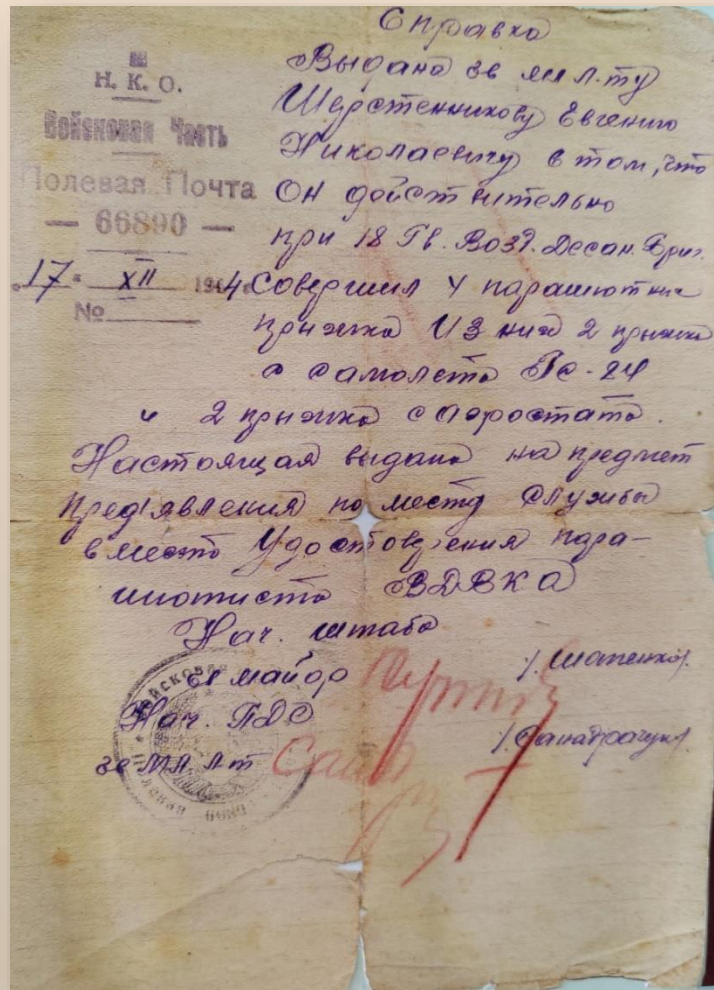 Справка
Н. К. О.
Войсковая Часть
Полевая Почта
— 66890 —
"17" XII 1944 г.
№
Выдана гв мл л-ту
Шерстенникову Евгению
Николаевичу в том, что
он действительно
при 18 Гв. Возд. Десан. Бриг.
Совершил 4 парашютных
прыжка Из них 2 прыжка
с самолета
и 2 прыжка с аэростата.
Настоящая выдана на предмет
Пред'явления по месту Службы
вместо Удостоверения пара-
шютиста
Нач. штаба
гв майор
Нач. ПДС
гв мл л-т